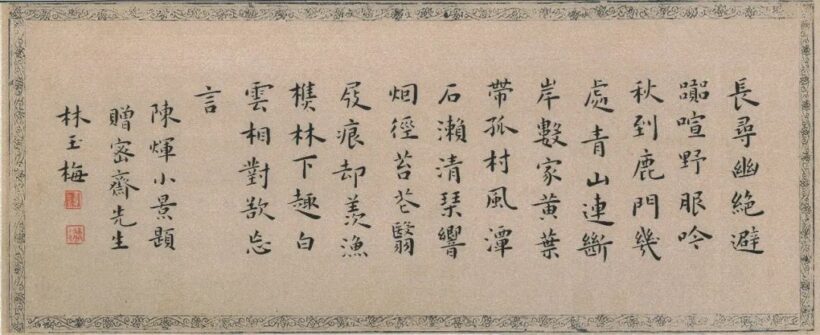 長尋幽絕避
囂喧野服吟
秋到鹿門幾
處青山連斷
岸數家黃葉
帶孤村風潭
石瀨清琹響
烟徑苔花翳
屐痕却羨漁
樵林下趣白
雲相對欲忘
言
陳煇小景題
贈密齋先生
林玉梅